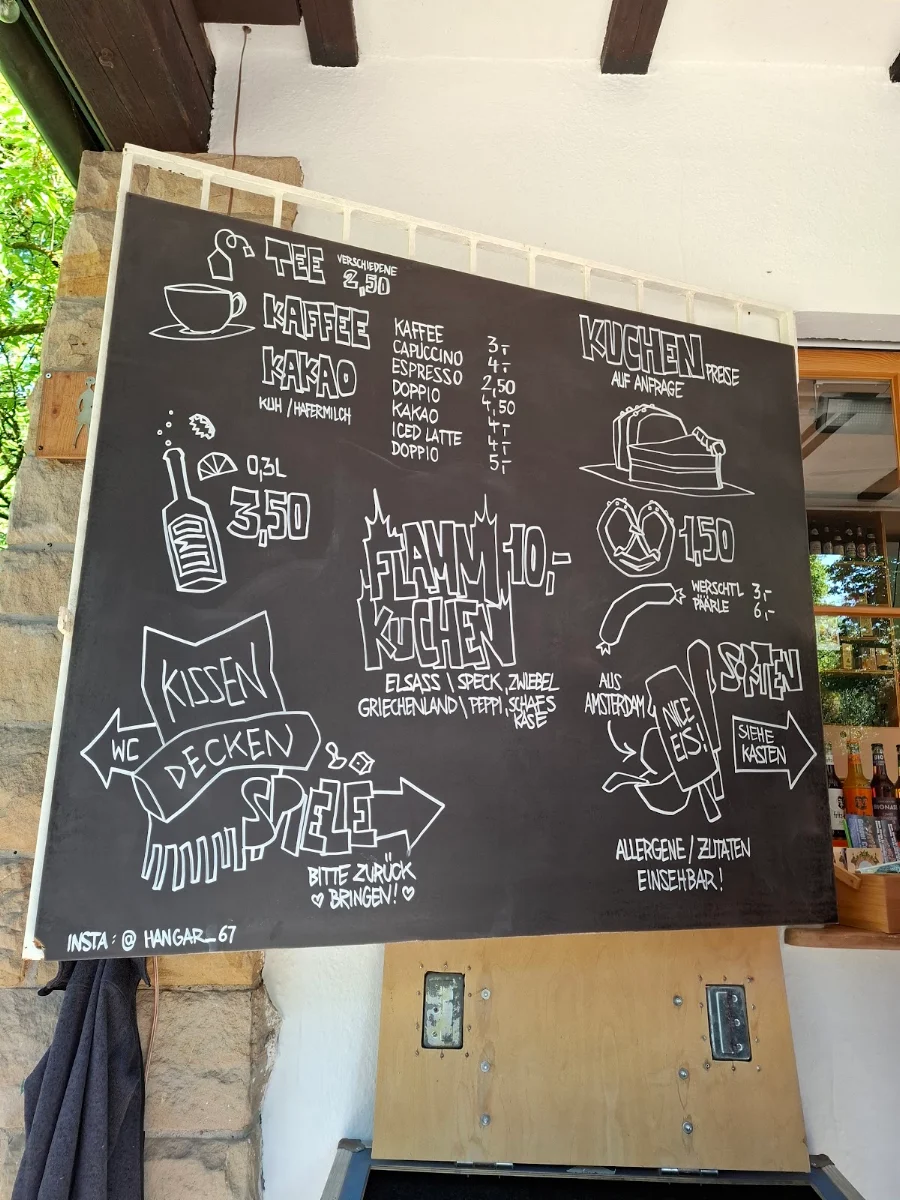 TEE VERSCHIEDENE
2,50
KAFFEE
KAKAO
KUH / HAFERMILCH
KAFFEE 3,-
CAPUCCINO 4,-
ESPRESSO 2,50
DOPPIO 4,50
KAKAO 4,-
ICED LATTE 4,-
DOPPIO 5,-
KUCHEN PREISE
AUF ANFRAGE
0,3L
3,50
FLAMM 10,-
KUCHEN
ELSASS \ SPECK, ZWIEBEL
GRIECHENLAND \ PEPPI, SCHAFS
KÄSE
1,50
WERSCHTL 3,-
PÄÄRLE 6,-
KISSEN
WC
DECKEN
SPIELE
BITTE ZURÜCK
♡ BRINGEN! ♡
AUS
AMSTERDAM
NICE
EIS!
SORTEN
SIEHE
KASTEN
ALLERGENE / ZUTATEN
EINSEHBAR!
INSTA: @ HANGAR_67